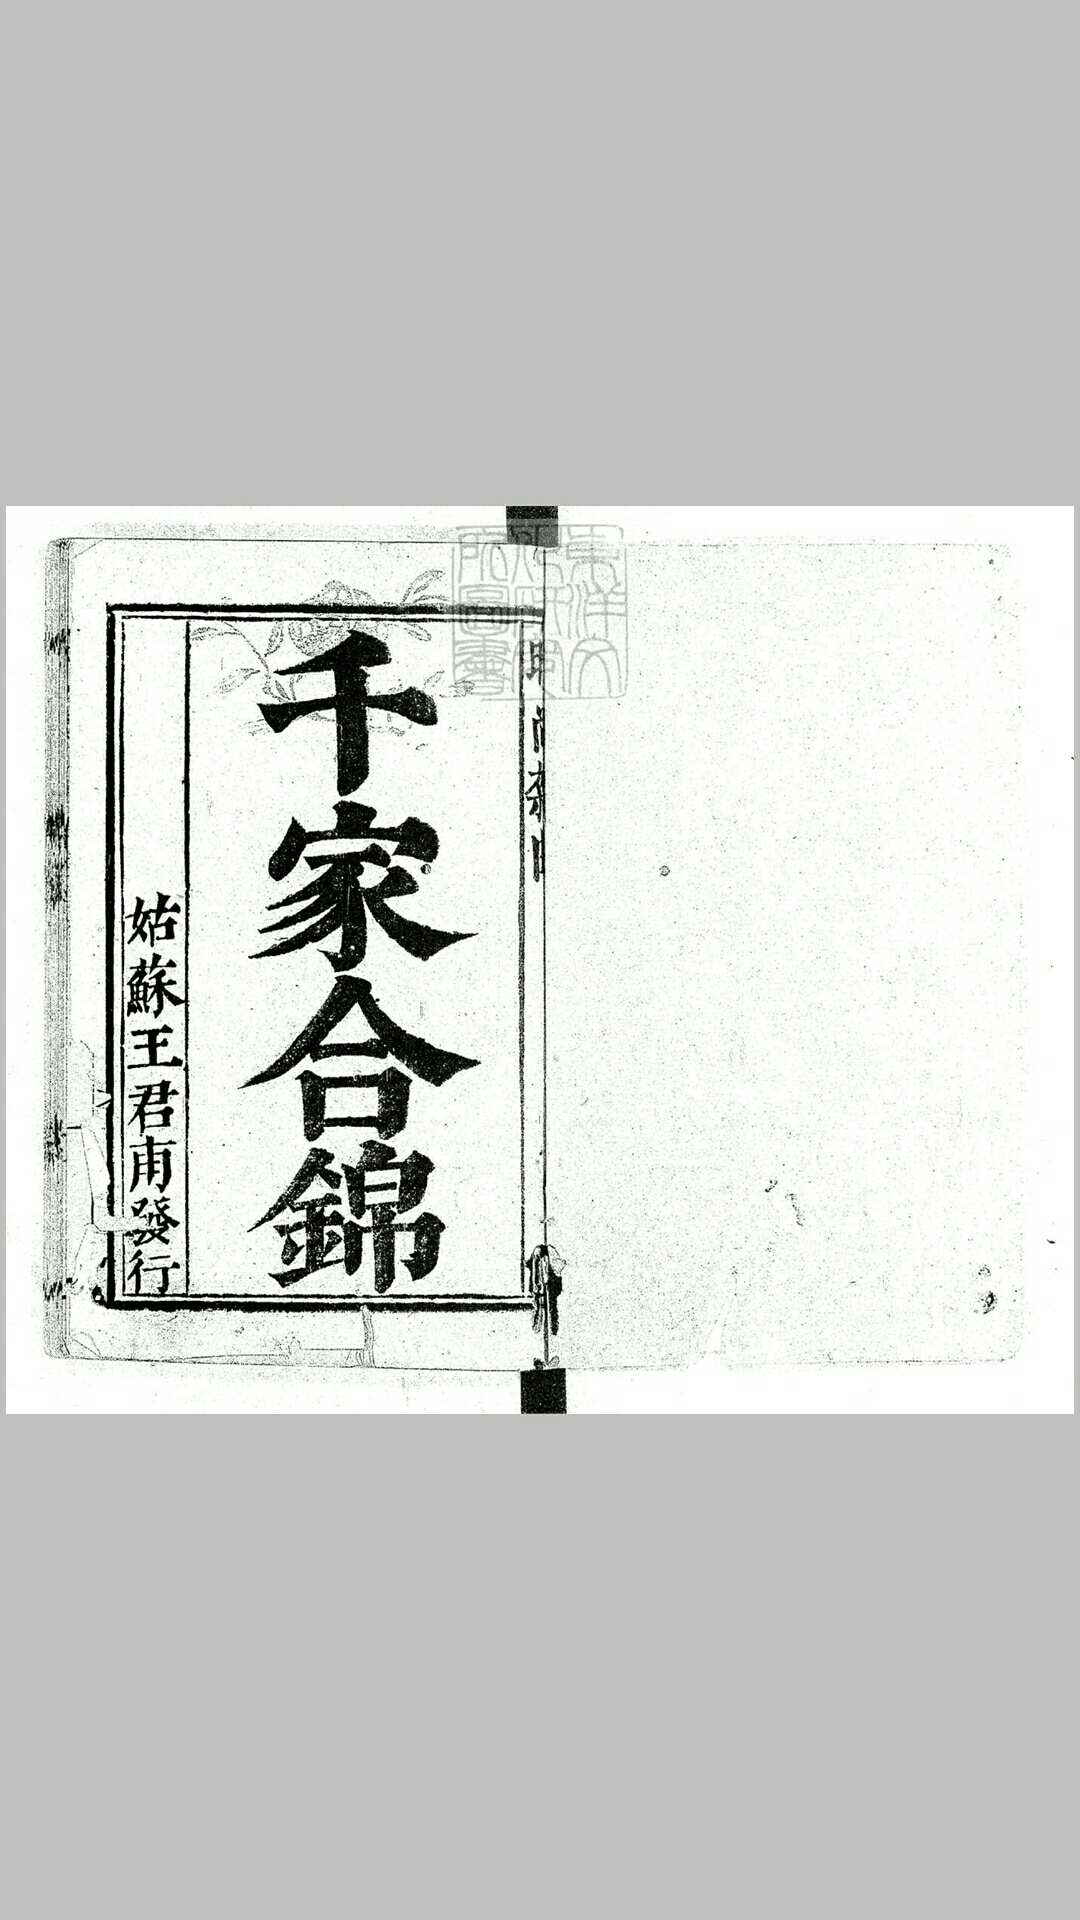 千家合錦
姑蘇王君甫發行